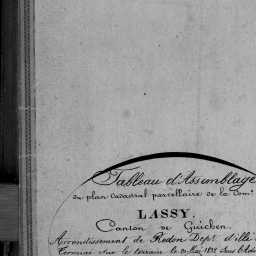 Tableau d'Assemblage
du plan cadastral parcellaire de la Com.
LASSY.
Canton de Guichen.
Arrondissement de Redon Dep.t d'Ille
Terminé sur le terrain le